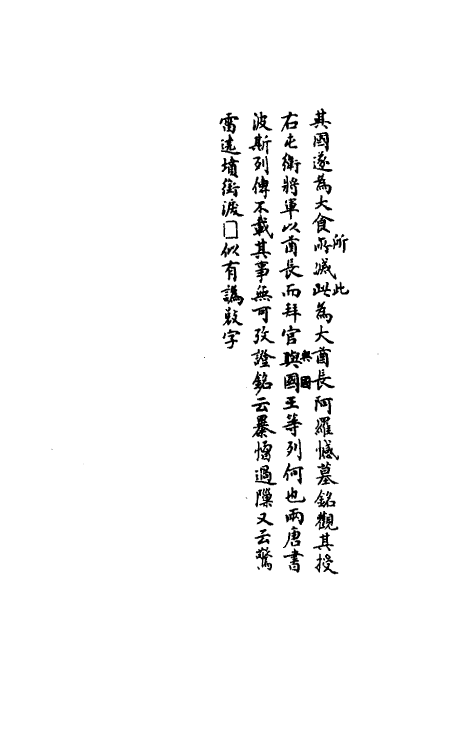 其國遂為大食所滅此為大酋長阿羅憾墓銘觀其授
所此
右屯衛將軍以酋長而拜官與國王等列何也兩唐書
與國
波斯列傳不載其事無可攷證銘云暴慟過隟又云驚
雷遶墳銜淚□似有譌敚字